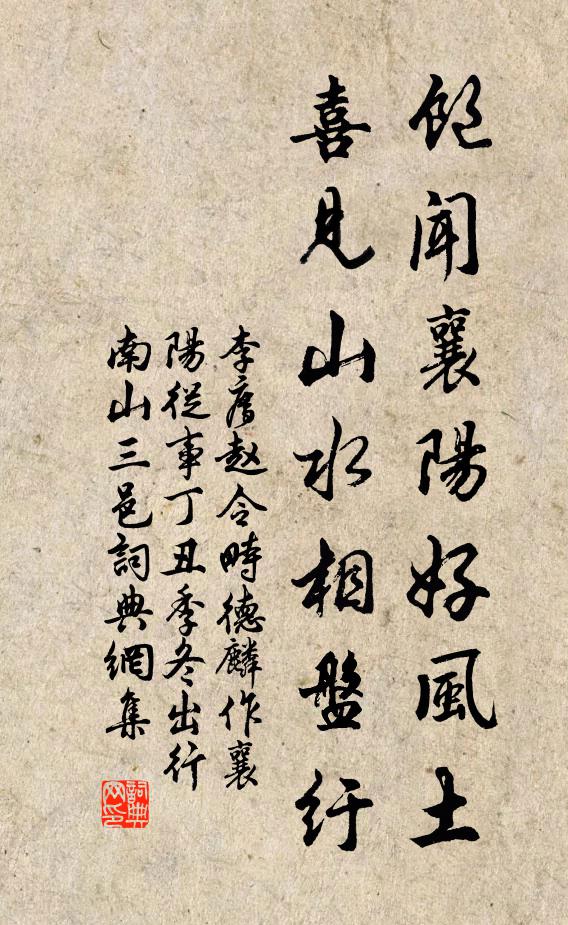 飽聞襄陽好風土
喜見山水相盤紆
李廌赵令時德麟作襄
陽從事丁丑季冬出行
南山三邑詞典網集
詞典
网印